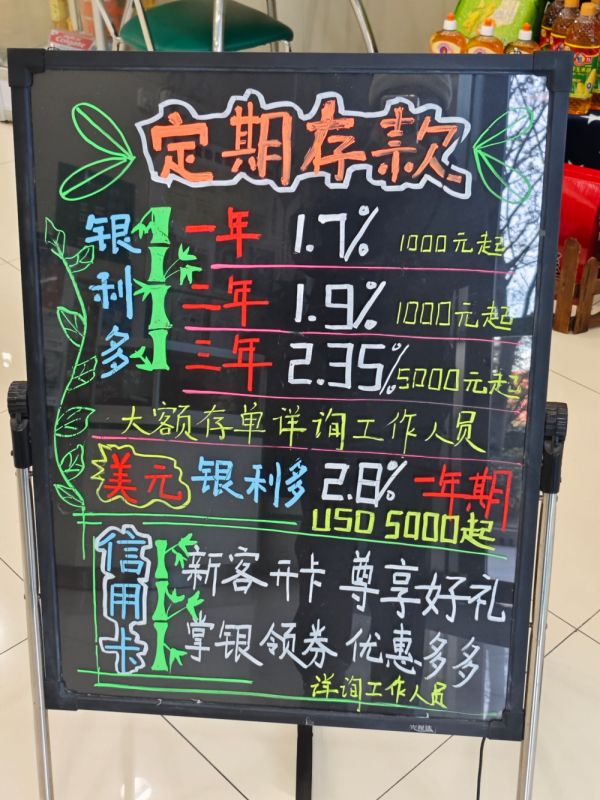 定期存款
银利多
一年 1.7% 1000元起
二年 1.9% 1000元起
三年 2.35% 5000元起
大额存单详询工作人员
美元 银利多 2.8% 一年期
USD 5000起
信用卡
新客开卡 尊享好礼
掌银领券 优惠多多
详询工作人员